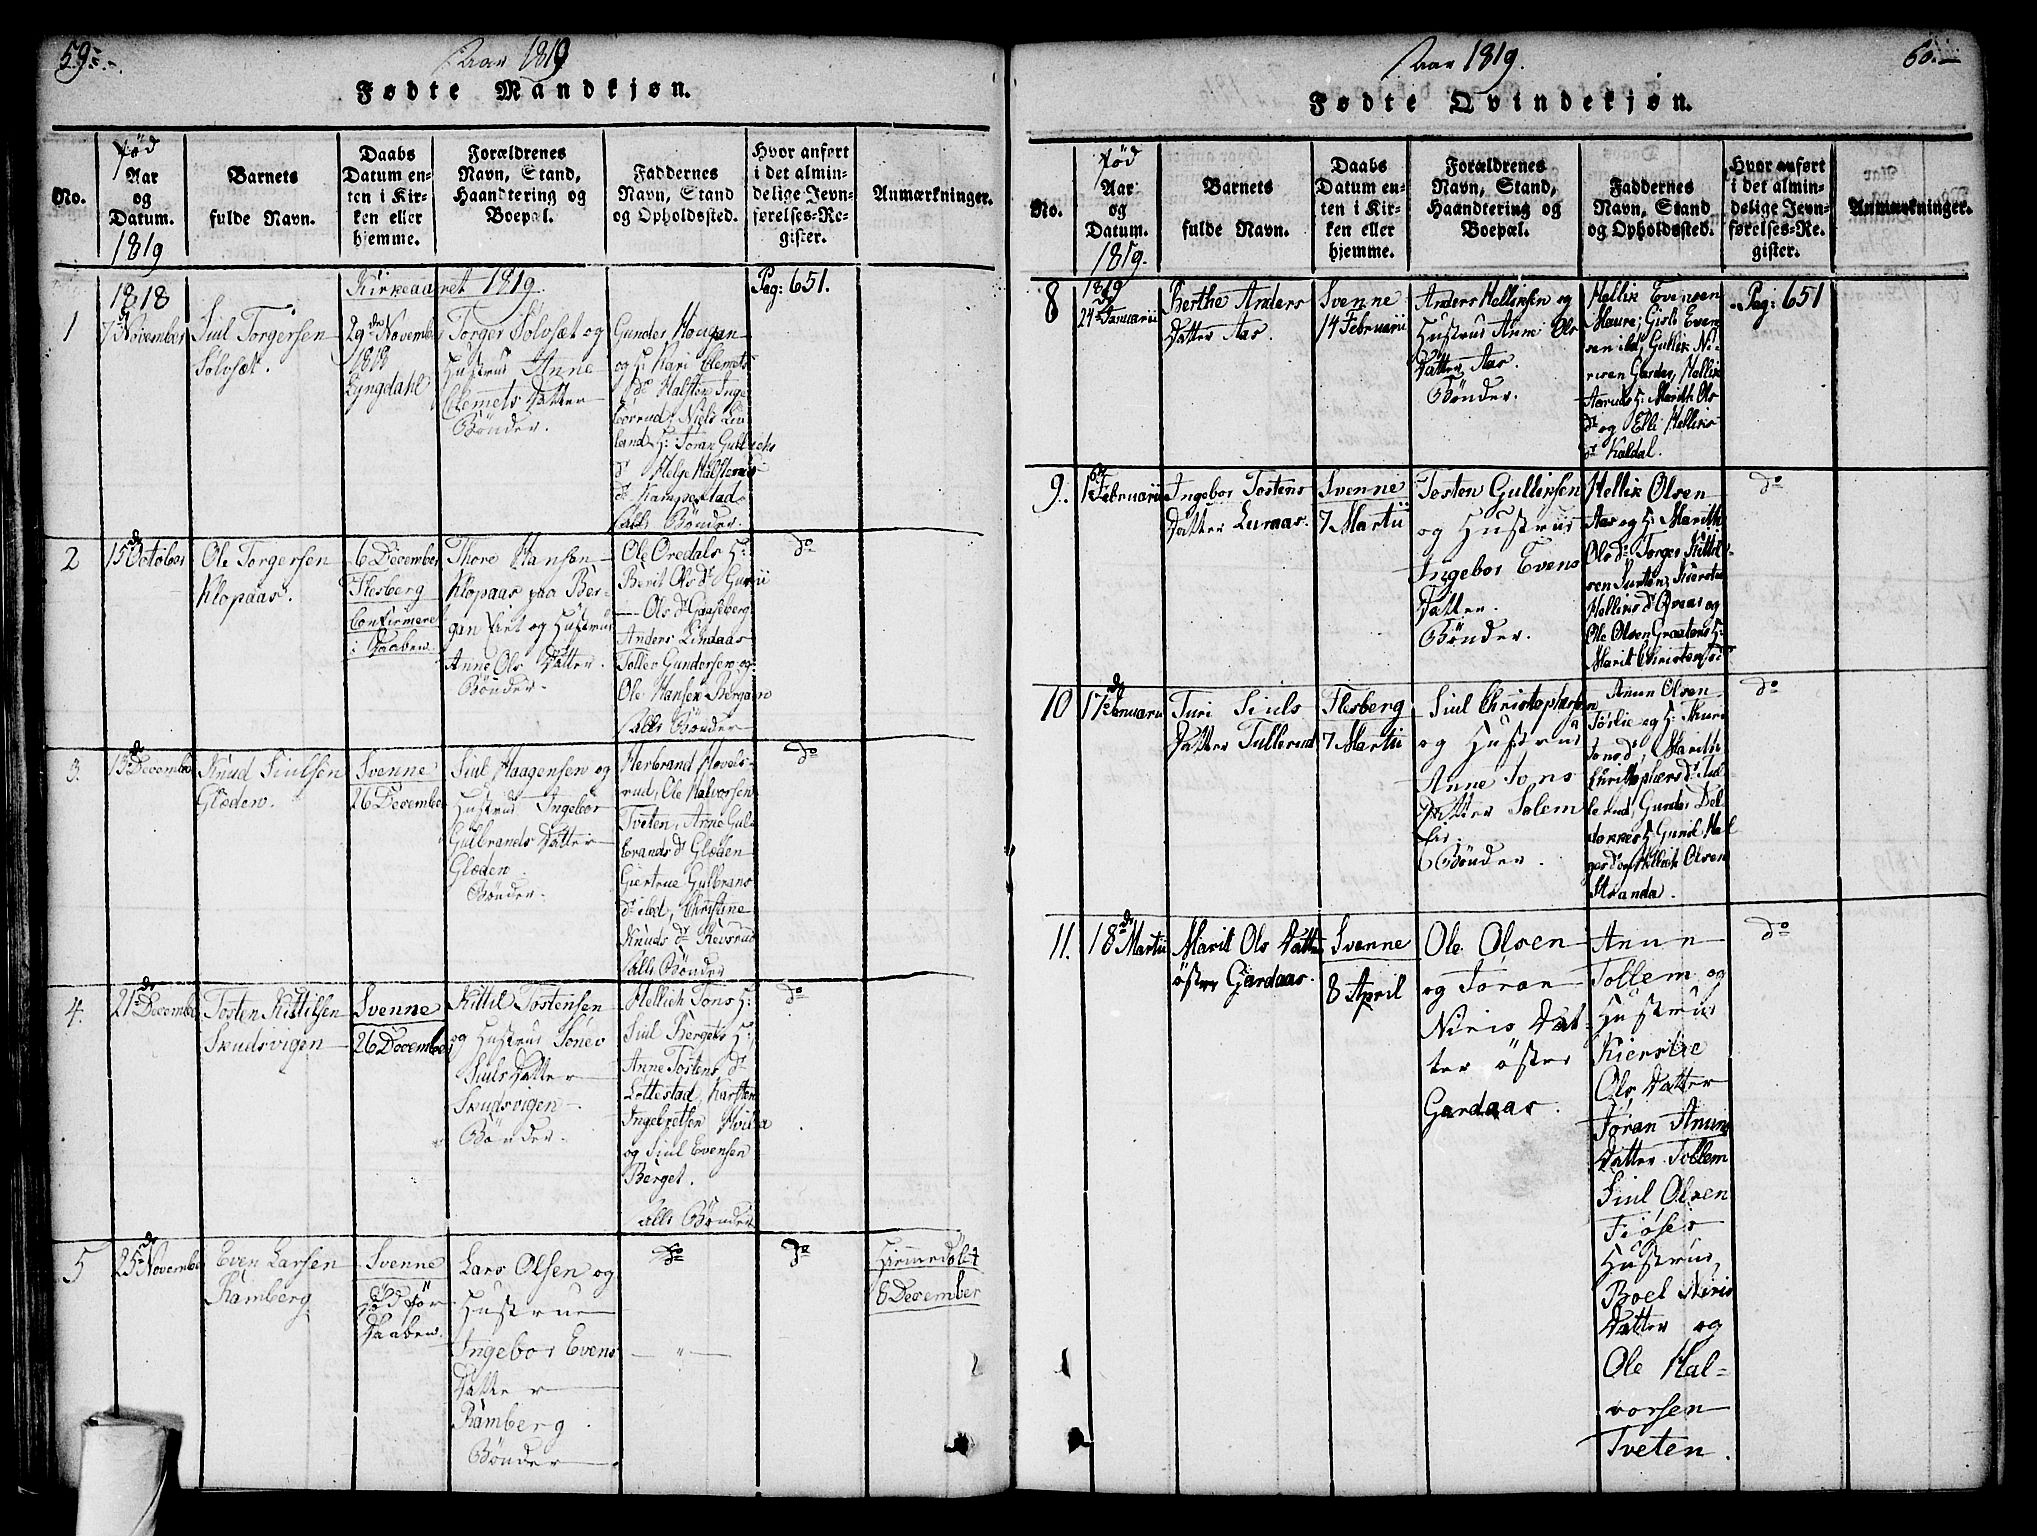 59.
Aar 1819
Fødte Mandkjøn.
No.
Fød
Aar
og
Datum.
1819
Barnets
fulde Navn.
Daabs
Datum en-
ten i Kir-
ken eller
hjemme.
Forældrenes
Navn, Stand,
Haandtering og
Boepæl.
Faddernes
Navn, Stand
og Opholdssted.
Hvor anført
i det almin-
delige Jevn-
førelses-Re-
gister.
Anmærkninger.
Kirkeaaret 1819.
1
1818
7de November
Siul Torgersen
Solosæt.
29de November
1818
Lyngdahl
Torger Solosæt og
Hustrue Anne
Clemets Datter
Bønder.
Gunder Hougan
og H: Kari Clemets
Dr Halsten Inge
borrud, Niels Liv
land H: Joran Gulliks
Dr Helge Halstens
Dr Kampestad
alle Bønder.
Pag: 651.
2
15de October
Ole Torgersen
Klopaas.
6 December
Flesberg
Confirmeret
i Daaben.
Thore Hansen
Klopaas paa Ber-
gan Eiet og Hustrue
Anne Ols Datter.
Bønder.
Ole Oredals H:
Berit Ols Dr Guri
Ols Dr Gaaseberg
Anders Lindaas
Tollev Gundersen og
Ole Hansen Bergan
alle Bønder
do
3.
13de December
Knud Siulsen
Glæden.
Svenne
26 December
Siul Haagensen og
Hustrue Ingebor
Gulbrands Datter
Glæden.
Bønder.
Herbrand Hovels-
rud, Ole Halvorsen
Tveten, Anne Gul-
brands Dr Glæden
Giertrue Gulbrans
Dr ibd, Christine
Knuds Dr Revsrud
alle Bønder
do
4.
21de December
Tosten Kittilsen
Skudsvigen
Svenne
26 December
Kittil Tostensen
og Hustrue Sønev
Siuls Datter
Skudsvigen.
Bønder.
Hellich Tons H:
Siul Bergets H:
Anne Tostens Dr
Lottestad, Karsten
Ingebretsen Hvila
og Siul Evensen
Berget.
alle Bønder
do
5
25de November
Even Larsen
Ramberg
Svenne
Død før
Daaben.
Lars Olsen og
Hustrue
Ingebor Evens
Datter
Ramberg.
Bønder
do
do
Hiemedøbt
8 December
60.
Aar 1819.
Fødte Qvindekjøn.
No.
Fød
Aar
og
Datum.
1819.
Barnets
fulde Navn.
Daabs
Datum en-
ten i Kir-
ken eller
hjemme.
Forældrenes
Navn, Stand,
Haandtering og
Boepæl.
Faddernes
Navn, Stand
og Opholdssted.
Hvor anført
i det almin-
delige Jevn-
førelses-Re-
gister.
Anmærkninger.
8
1819
24de Januarii
Berthe Anders
Datter Aas.
Svenne
14 Februarii
Anders Helliksen og
Hustrue Anne Ols
Datter Aas.
Bønder.
Hellik Evensen
Maure, Gisle Even
sen ibd, Gullik Ni-
risen Gardaas, Hellik
Aaruds H: Marith Ols
Dr og Elli Helliks
Dr Kaldal.
Pag: 651
9.
1de Februarii
Ingebor Tostens
Datter Luraas.
Svenne
7 Martii
Tosten Gulliksen
og Hustrue
Ingebor Evens
Datter.
Bønder.
Hellik Olsen
Aas og H: Marith
Ols Dr Torger Kittil-
sen Surten, Kierstie
Helliks Dr Qvaas og
Ole Olsen Graatens H:
Marit Christens Dr
do
10
17de Januarii
Turi Siuls
Datter Tullerud
Flesberg
7 Martii
Siul Christophersen
og Hustrue
Anne Tons
Datter Solem
Eie.
Bønder.
Anun Olsen
Tøslie og H: Thuri
Tons Dr, Marith
Christophers Dr Tul
lerud, Gunder Del
dokkes H: Gunil Hel
ges Dr og Hellich Olsen
Stranda.
do
11.
18de Martii
Marit Ols Datter
øster Gardaas.
Svenne
8 April
Ole Olsen
og Joran
Niris Dat-
ter øster
Gardaas.
Anun
Tollem og
Hustrue
Kierstie
Ols Datter
Joran Anuns
Datter Tollem
Siul Olsen
Fiøses
Hustrue,
Boel Niris
Datter og
Ole Hal-
vorsen
Tveten.
do